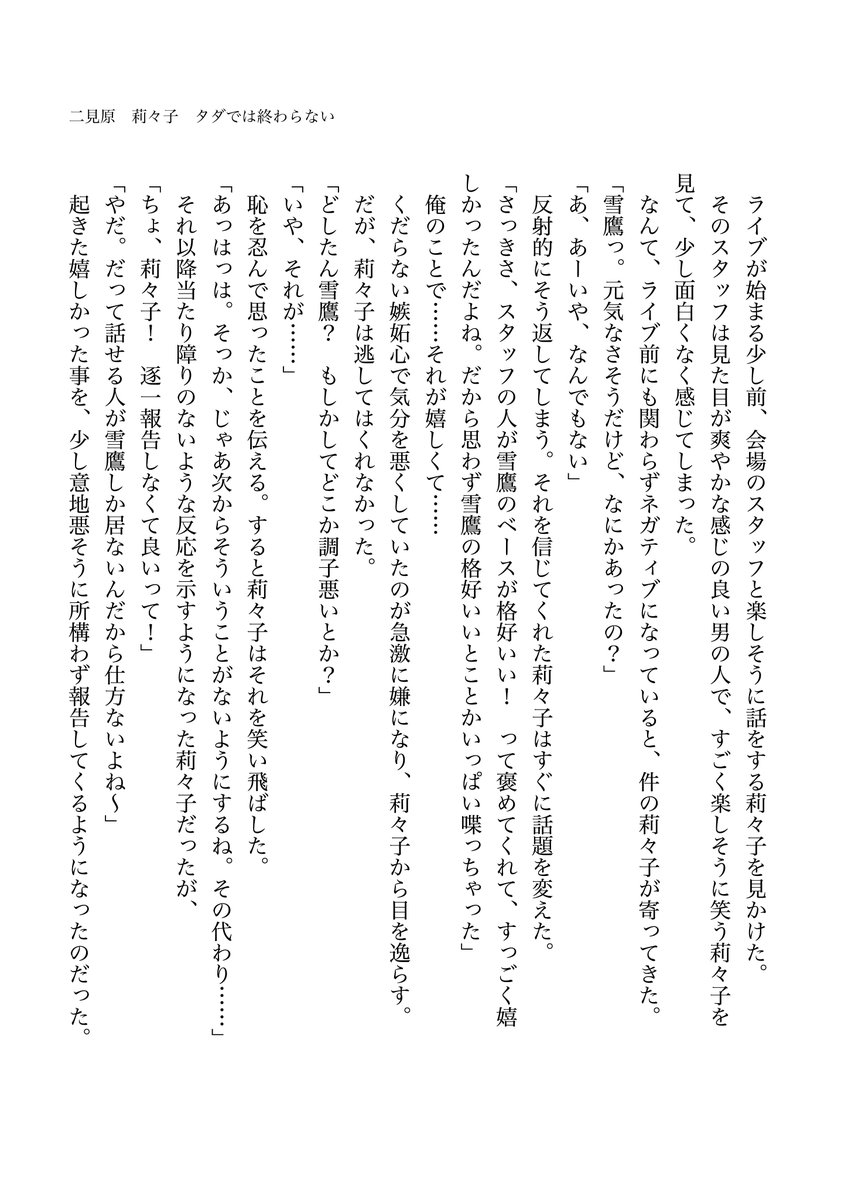 二見原　莉々子　タダでは終わらない
ライブが始まる少し前、会場のスタッフと楽しそうに話をする莉々子を見かけた。
そのスタッフは見た目が爽やかな感じの良い男の人で、すごく楽しそうに笑う莉々子を
見て、少し面白くなく感じてしまった。
なんて、ライブ前にも関わらずネガティブになっていると、件の莉々子が寄ってきた。
「雪鷹っ。元気なさそうだけど、なにかあったの？」
「あ、あーいや、なんでもない」
反射的にそう返してしまう。それを信じてくれた莉々子はすぐに話題を変えた。
「さっきさ、スタッフの人が雪鷹のベースが格好いい！　って褒めてくれて、すっごく嬉
しかったんだよね。だから思わず雪鷹の格好いいとことかいっぱい喋っちゃった」
俺のことで……それが嬉しくて……
くだらない嫉妬心で気分を悪くしていたのが急激に嫌になり、莉々子から目を逸らす。
だが、莉々子は逃してはくれなかった。
「どしたん雪鷹？　もしかしてどこか調子悪いとか？」
「いや、それが……」
恥を忍んで思ったことを伝える。すると莉々子はそれを笑い飛ばした。
「あっはっは。そっか、じゃあ次からそういうことがないようにするね。その代わり……」
それ以降当たり障りのないような反応を示すようになった莉々子だったが、
「ちょ、莉々子！　逐一報告しなくて良いって！」
「やだ。だって話せる人が雪鷹しか居ないんだから仕方ないよね〜」
起きた嬉しかった事を、少し意地悪そうに所構わず報告してくるようになったのだった。